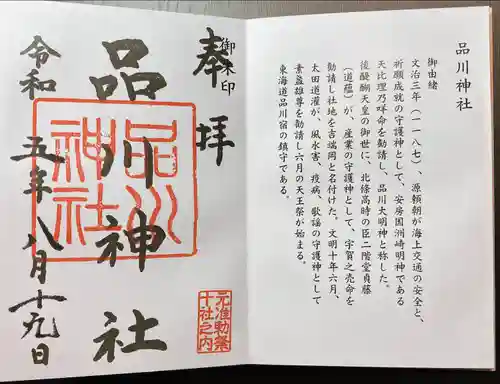 品川神社
御由緒
文治三年(一一八七)、源頼朝が海上交通の安全と、
祈願成就の守護神として、安房国洲崎明神である
天比理乃咩命を勧請し、品川大明神と称した。
後醍醐天皇の御世に、北條高時の臣二階堂貞藤
(道蘊)が、産業の守護神として、宇賀之売命を
勧請し社地を吉端岡と名付けた。文明十年六月、
太田道灌が、風水害、疫病、歌謡の守護神として
素盞雄尊を勧請し六月の天王祭が始まる。
東海道品川宿の鎮守である。
御朱印
奉拝
品川神社
品川
神社
元准勅祭
十社之内
令和五年八月十九日